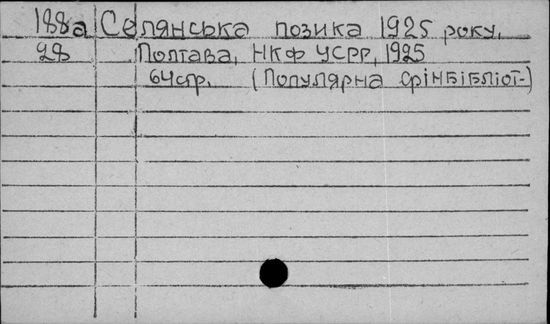 188а Селянська позика 1925 року.
28 Полтава, НКФ УСРР, 1925
64стр. (Популярна фінбібліот-)